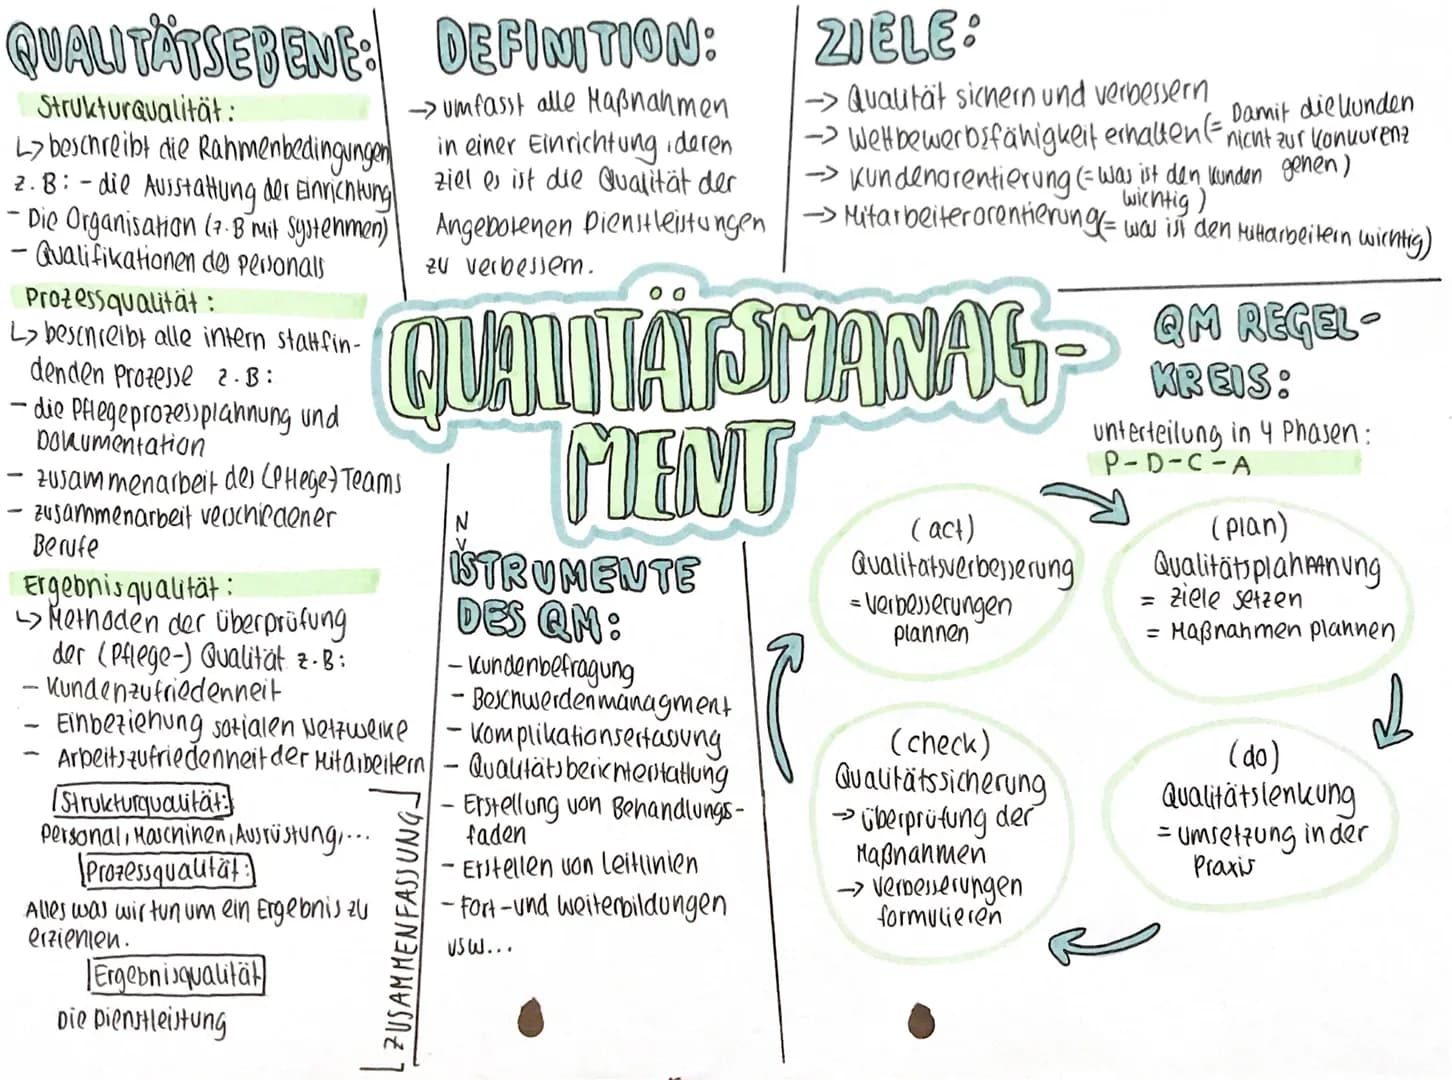 QUALITÄTSEBENE:
Strukturqualität:
↳ beschreibt die Rahmenbedingungen
z.B: - die Ausstattung der Einrichtung
- Die Organisation (z.B mit Systehmen)
- Qualifikationen des Personals
Prozessqualität:
↳ beschreibt alle intern stattfin-
denden Prozesse z.B:
- die Pflegeprozessplahnung und
Dokumentation
- zusammenarbeit des (Pflege-) Teams
- zusammenarbeit verschiedener
Berufe
Ergebnisqualität:
↳ Methoden der überprüfung
der (Pflege-) Qualität z.B:
- Kundenzufriedenheit
- Einbeziehung sotialen Netzwerke
- Arbeitszufriedenheit der Mitarbeitern
Strukturqualität:
Personal, Maschinen, Ausrüstung,...
Prozessqualität:
Alles was wir tun um ein Ergebnis zu
erziehlen.
Ergebnisqualität
Die Dienstleistung
ZUSAMMENFASSUNG
DEFINITION:
→ umfasst alle Maßnahmen
in einer Einrichtung, deren
ziel es ist die Qualität der
Angebotenen Dienstleistungen
zu verbessern.
ZIELE:
→ Qualität sichern und verbessern
→ Wettbewerbsfähigkeit erhalten (= Damit die Kunden
nicht zur Konkurenz
gehen)
→ Kundenorentierung (= was ist den Kunden
wichtig)
→ Mitarbeiterorentierung (= was ist den Mitarbeitern wichtig)
QUALITÄTSMANAG-
MENT
N
ISTRUMENTE
DES QM:
- Kundenbefragung
- Beschwerdenmanagment
- Komplikationserfassung
- Qualitätsberichterstattung
- Erstellung von Behandlungs-
faden
- Erstellen von Leitlinien
- Fort-und Weiterbildungen
usw...
QM REGEL-
KREIS:
unterteilung in 4 Phasen:
P-D-C-A
(act)
Qualitätsverbesserung
= Verbesserungen
plannen
(plan)
Qualitätsplahnung
= ziele setzen
= Maßnahmen plannen
(check)
Qualitätssicherung
→ überprüfung der
Maßnahmen
→ Verbesserungen
formulieren
(do)
Qualitätslenkung
= umsetzung in der
Praxis